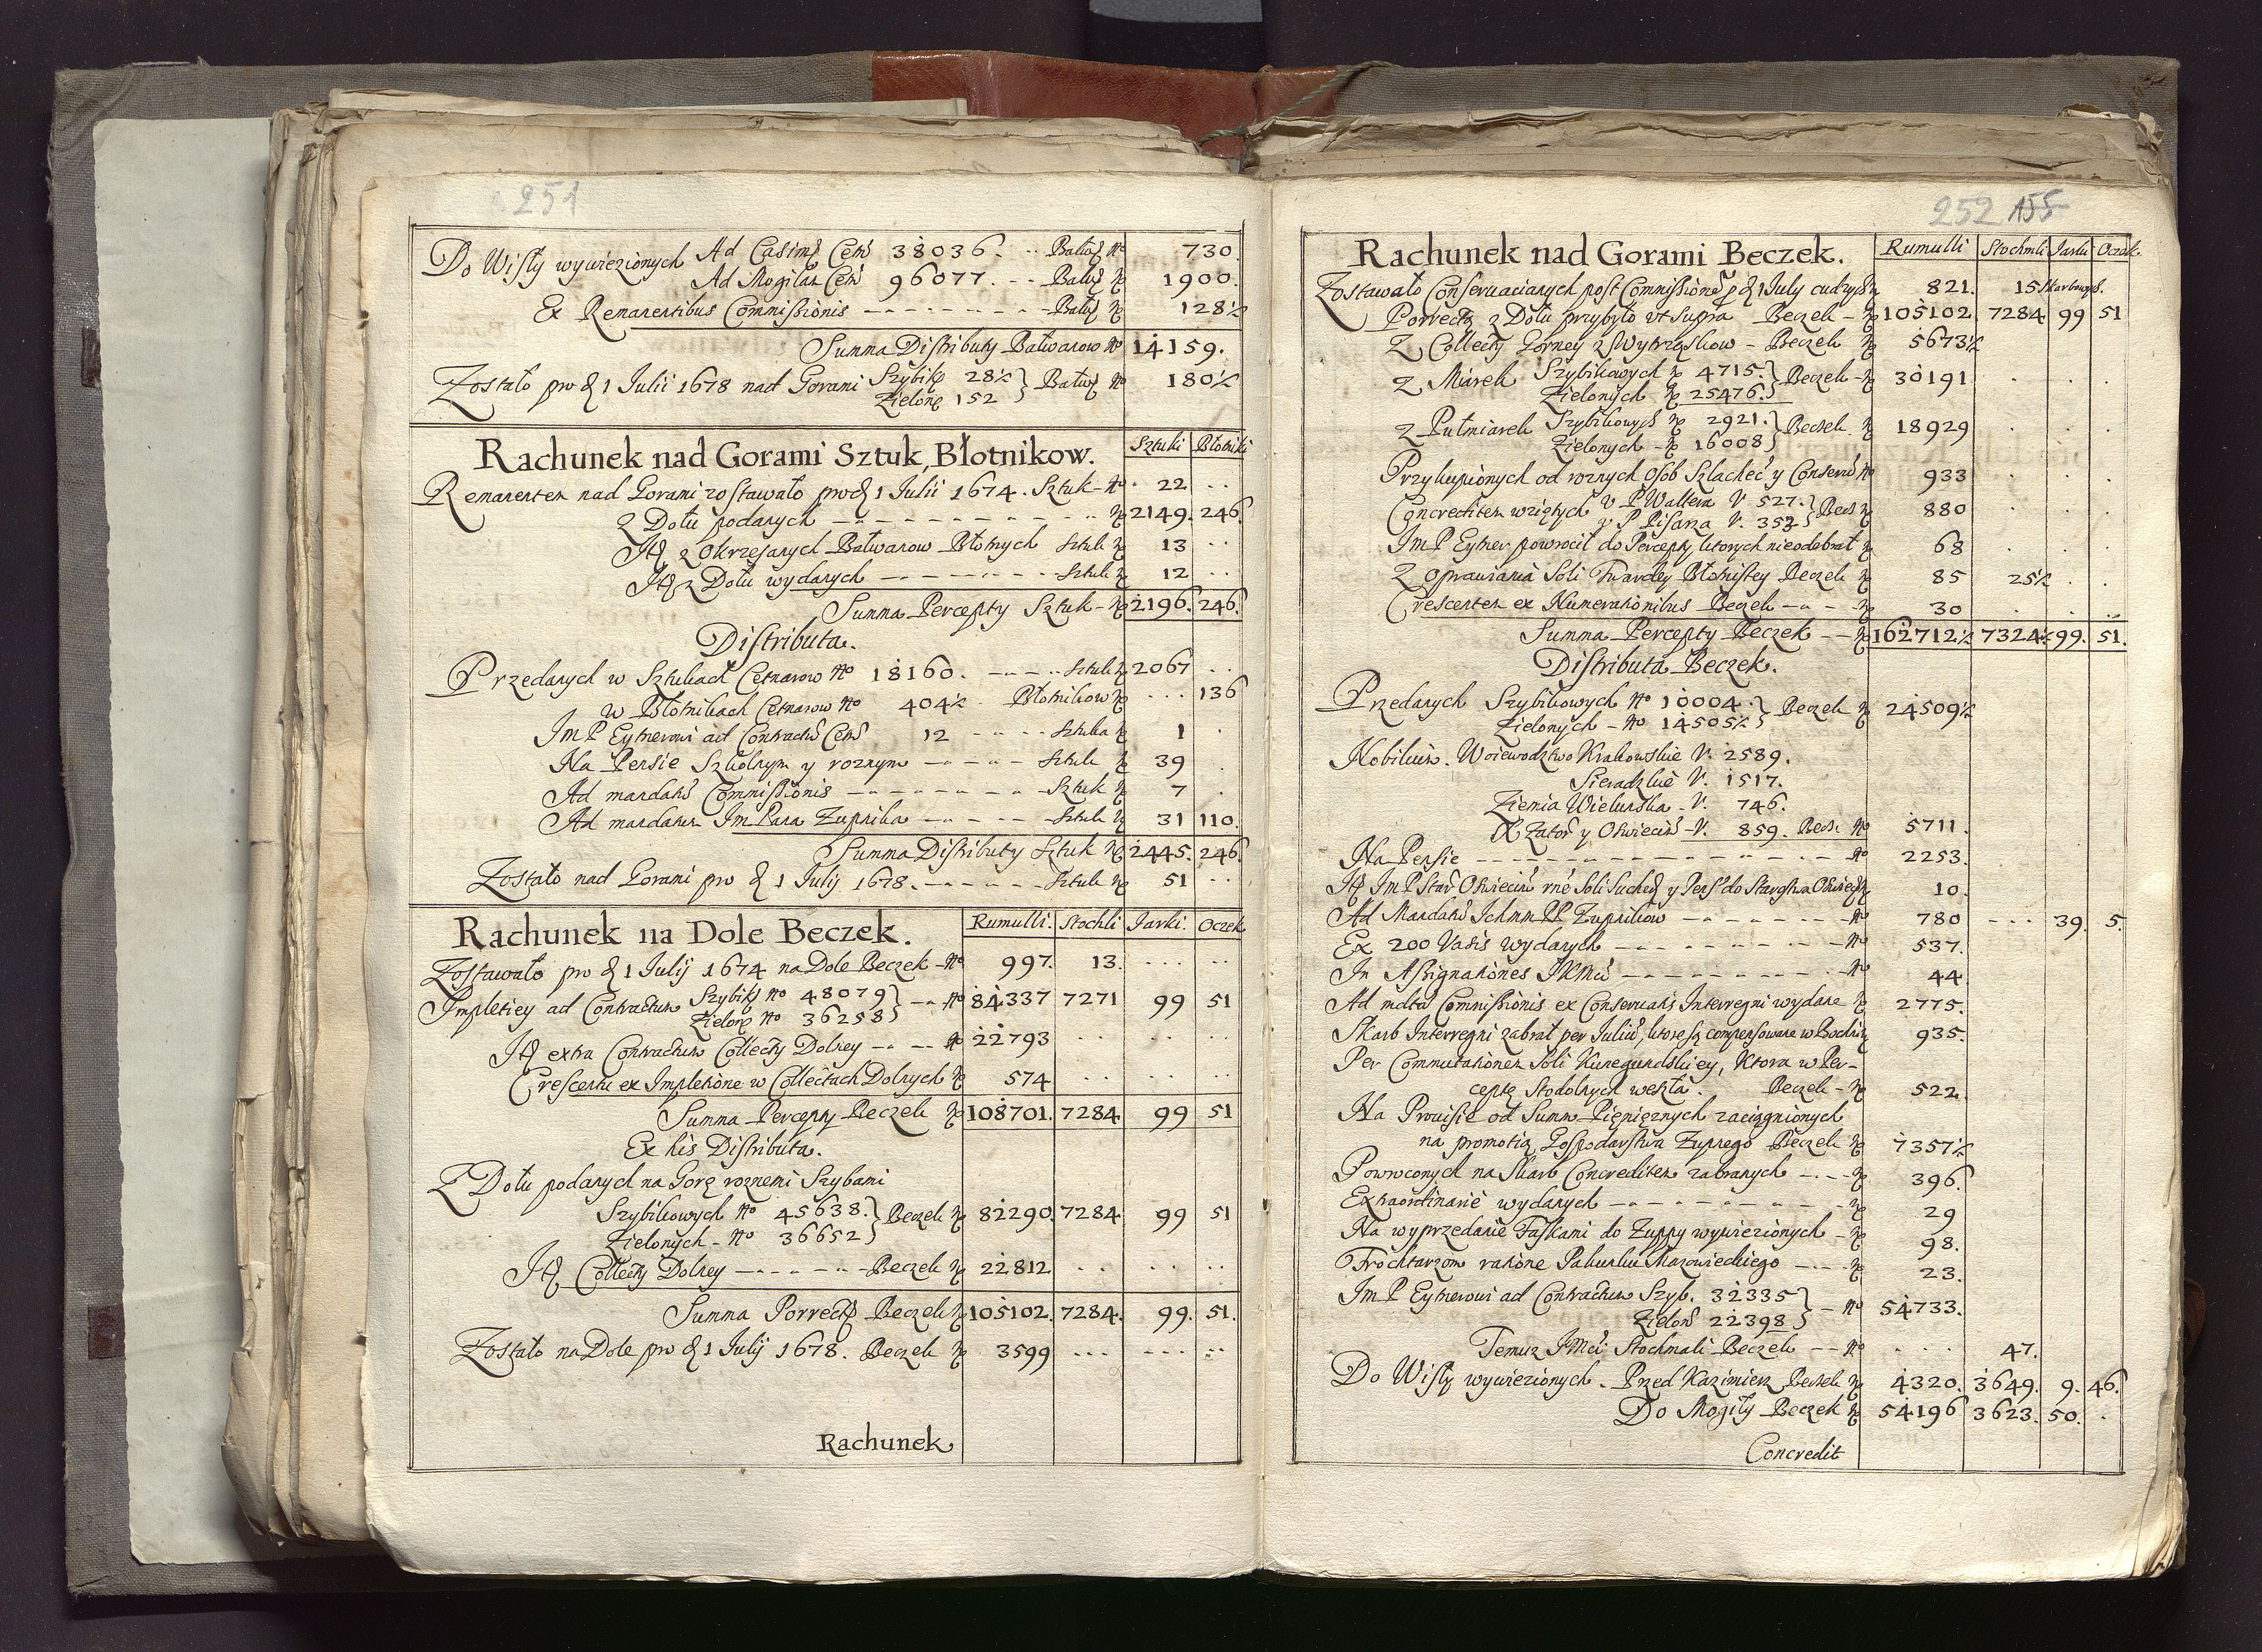 251
Do Wisły wywiezionych Ad Casimi Cen 38036. Bałw No 730.
Ad Mogilam Cen 96077. Bałw No 1900.
Ex Remanentibus Commissionis Bałw No 128½
Summa Distributy Bałwanow No 14159.
Zostało pro d 1 Julii 1678 nad Gorami Szybik 28½ Bałw No 180½
Zielone 152
Rachunek nad Gorami Sztuk, Błotnikow. Sztuki Błotniki
Remanentem nad Gorami zostawało pro d 1 Julii 1674. Sztuk No 22
Z Dołu podanych No 2149. 246.
It z Okrzesanych Bałwanow Błotnych Sztuk No 13
It z Dołu wydanych Sztuk No 12
Summa Percepty Sztuk No 2196. 246.
Distributa.
Przedanych w Sztukach Cetnarow No 18160. Sztuk No 2067
w Błotnikach Cetnarow No 404½ Błotnikow No 136
Im P Eytnerowi ad Contractu Cen 12 Sztuka No 1
Na Pensie Szkolnym y roznym Sztuk No 39
Ad mandatu Commissionis Sztuk No 7
Ad mandatum Im Pana Zupnika Sztuk No 31 110.
Summa Distributy Sztuk No 2445. 246.
Zostało nad Gorami pro d 1 Julij 1678. Sztuk No 51
Rachunek na Dole Beczek. Rumulli. Stochli Jarki. Oczek
Zostawało pro d 1 Julij 1674 na Dole Beczek No 997. 13.
Impletiey ad Contractum Szybik No 48079 No 84337 7271 99 51
Zielone No 36258
It extra Contractum Collecty Dolney No 22793
Crescentu ex Impletione w Collectach Dolnych No 574
Summa Percepty Beczek No 108701. 7284 99 51
Ex his Distributa.
Z Dołu podanych na Gorę roznemi Szybami
Szybikowych No 45638. Beczek No 82290 7284 99 51
Zielonych No 36652
It Collecty Dolney Beczek No 22812
Summa Porrecty Beczek No 105102. 7284. 99. 51.
Zostało na Dole pro d 1 Julij 1678. Beczek No 3599
Rachunek
252 155
Rachunek nad Gorami Beczek. Rumulli Stochmli Jarki Oczek
Zostawało Conservacianych post Commissione p d 1 July 821. 15
Porrecty z Dołu przybyło vt Supra Beczek No 105102 7284 99 51
Z Collecty Gorney z Wytrząskow Beczek No 5673½
Z Miarek Szybikowych No 4715. Beczek No 30191
Zielonych No 25476.
Z Pułmiarek Szybikowych No 2921. Beczek No 18929
Zielonych No 16008
Przykupionych od roznych Osob Szlachec y Conserw No 933
Concreditem wziętych v P Waltera V. 527. Becz No 880
v P Pisarza V. 353
Im P Eytner powrocił do Percepty ktorych nieodebrał No 68
Z oprawiania Soli Twardey Błotnistey Beczek No 85 25½
Crescentem ex Numerationibus Beczek No 30
Summa Percepty Beczek No 162712½ 7324½ 99. 51.
Distributa Beczek.
Przedanych Szybikowych No 10004. Beczek No 24509½
Zielonych No 14505½
Nobilium. Woiewodztwo Krakowskie V. 2589.
Sieradzkie V. 1517.
Ziemia Wielunska V. 746.
X Zator y Oswiecim V. 859. Becz No 5711.
Na Pensie No 2253.
It Im P Star Oswiecim Soli Suchey y Pens do Starostwa 10.
Ad Mandatu Ichmm PP Zupnikow No 780 39. 5.
Ex 200 Vasis wydanych No 537.
In Assignationes JKMci No 44
Ad mdta Commissionis ex Conservatis Interregni wydane No 2775.
Skarb Interregni zabrał per Juliu, ktore są compensowane w Bochni 935.
Per Commutationem Soli Kunegundskiey, Ktora w Per-
ceptę Stodolnych weszła. Beczek No 522.
Na Prowisie od Summ Pięnięznych zaciągnionych
na promotią Gospodarstwa Zupnego Beczek No 7357½
Powroconych na Skarb Concreditem zabranych No 396.
Extraordinarie wydanych No 29
Na wyprzedanie Faskami do Zuppy wywiezionych No 98.
Trochtarzom ratione Pakunku Mazowieckiego No 23.
Im P Eytnerowi ad Contractum Szyb. 32335 No 54733.
Zielon 22398
Temuz JMci Stochmali Beczek No 47.
Do Wisły wywiezionych. Przed Kazimierz Beczek No 4320. 3649. 9. 46.
Do Mogiły Beczek No 54196 3623. 50.
Concredit